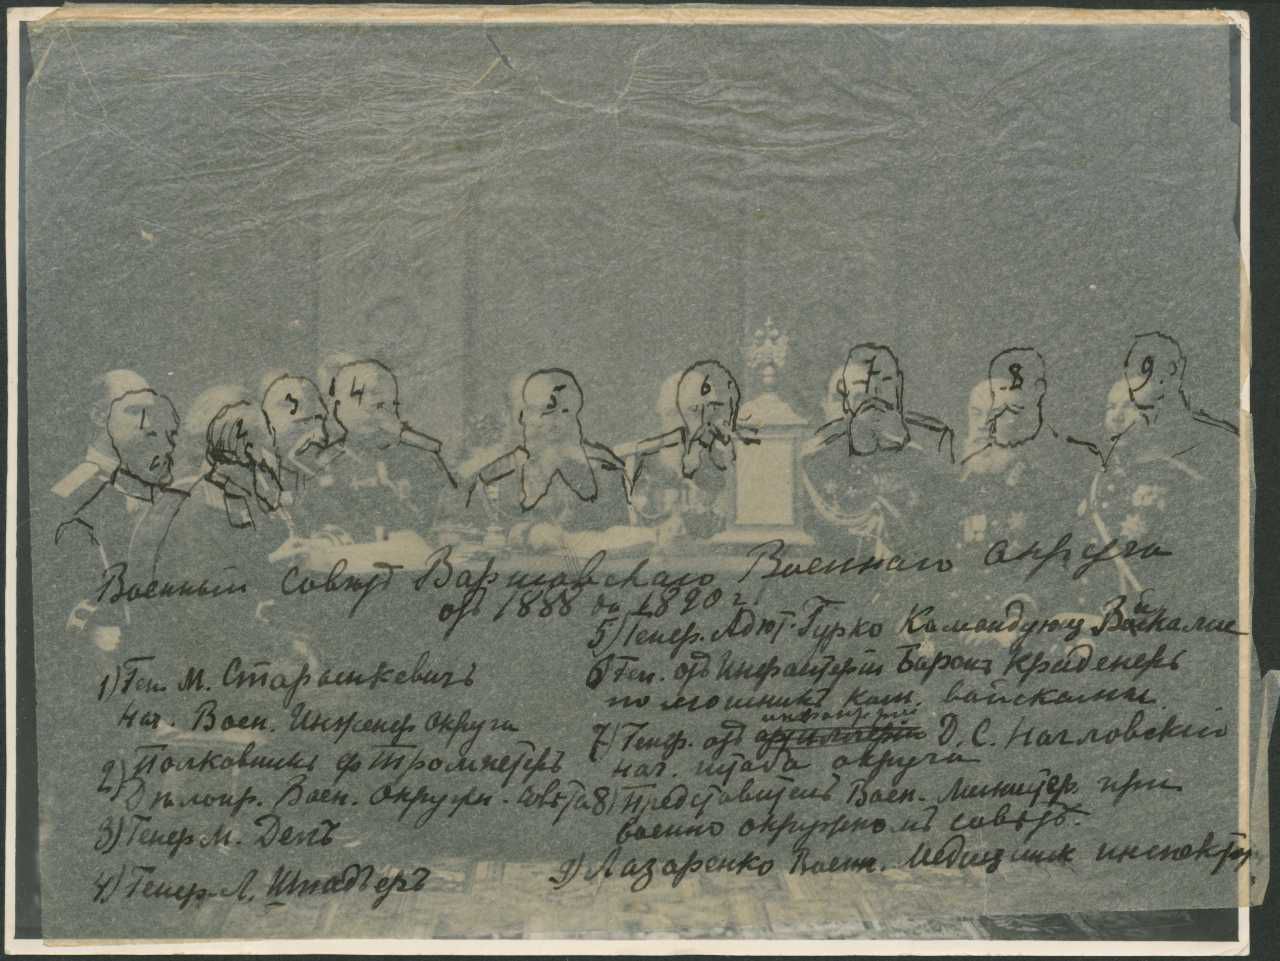 1
2
3
4
5
6
7
8
9
Военный Совѣт Варшавскаго Военнаго округа
от 1888 до 1890 г.
1) Ген. М. Старынкевичъ
нач. Воен. Инженер округа
2) Полковникъ ф Тромпетеръ
Дѣлопр. Воен. Окружн. Совѣта
3) Генер М. Денъ
4) Генер. Л. Шпадѣеръ
5) Генер. Адют. Гурко Командующ Войсками
6) Ген. отъ Инфантеріи Баронъ Криденеръ
помошникъ ком. войсками.
7) Генер. отъ инфантеріи артилеріи Д. С. Нагловскій
нач. штаба округа
8) Представитель Воен. Министер. при
военно окружномъ совѣтѣ.
9) Лазаренко Военн. Медицинск инспектор.